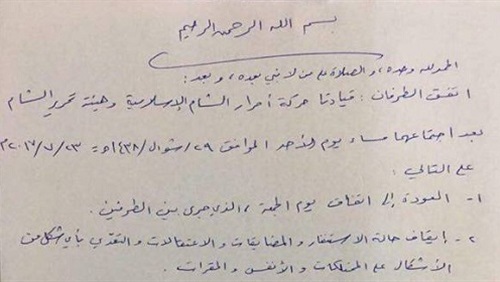 بسم الله الرحمن الرحيم
الحمد لله وحده، والصلاة على من لا نبي بعده، وبعد:
اتفق الطرفان: قيادتا حركة أحرار الشام الإسلامية وهيئة تحرير الشام
بعد اجتماعهما مساء يوم الأحد الموافق ٢٩/شوال/١٤٣٨هـ = ٢٣/٧/٢٠١٧م
على التالي:
١- العودة إلى اتفاق يوم الجمعة، الذي جرى بين الطرفين.
٢- إيقاف حالة الاستنفار والمضايقات والاعتقالات والتعدّي بأي شكل من
الأشكال على الممتلكات والأنفس والمقرات.